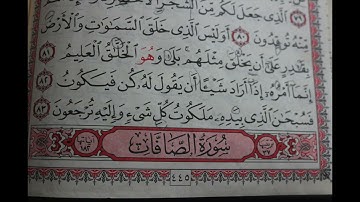 الَّذِي جَعَلَ لَكُم مِّنَ الشَّجَرِ الْأَخْضَرِ
مِّنْهُ تُوقِدُونَ ٨٠ أَوَلَيْسَ الَّذِي خَلَقَ السَّمَاوَاتِ وَالْأَرْضَ
بِقَادِرٍ عَلَىٰ أَن يَخْلُقَ مِثْلَهُم بَلَىٰ وَهُوَ الْخَلَّاقُ الْعَلِيمُ ٨١
إِنَّمَا أَمْرُهُ إِذَا أَرَادَ شَيْئًا أَن يَقُولَ لَهُ كُن فَيَكُونُ ٨٢
فَسُبْحَانَ الَّذِي بِيَدِهِ مَلَكُوتُ كُلِّ شَيْءٍ وَإِلَيْهِ تُرْجَعُونَ ٨٣
سُورَةُ الصَّافَّاتِ
٤٤٥